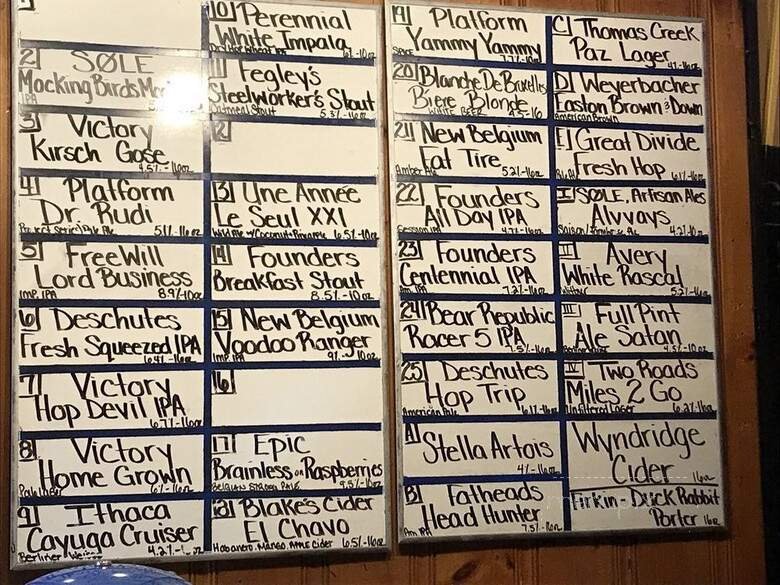 1
2 SØLE
Mocking Birds
IPA
3 Victory
Kirsch Gose
4.5%-16oz
4 Platform
Dr. Rudi
Project Series Pale Ale 5.1%-16oz
5 Free Will
Lord Business
IMP. IPA 8.9%-10oz
6 Deschutes
Fresh Squeezed IPA
6.4%-16oz
7 Victory
Hop Devil IPA
6.7%-16oz
8 Victory
Home Grown
Pale Lager 6%-16oz
9 Ithaca
Cayuga Cruiser
Berliner Weisse 4.2%
10 Perennial
White Impala
-10oz
11 Fegley's
Steelworker's Stout
Oatmeal Stout 5.3%-16oz
12
13 Une Année
Le Seul XXI
Wild Ale w/Coconut+Pineapple 6.5%-10oz
14 Founders
Breakfast Stout
8.5%-10oz
15 New Belgium
Voodoo Ranger
Imp. IPA 9%-10oz
16
17 Epic
Brainless on Raspberries
BELGIAN STRONG PALE 9.5%-10oz
18 Blake's Cider
El Chavo
Habanero, Mango, Apple Cider 6.5%-16oz
19 Platform
Yammy Yammy
20 Blanche De Bruxelles
Biere Blonde
WHITE BEER 4.5%-16
21 New Belgium
Fat Tire
Amber Ale 5.2%-16oz
22 Founders
All Day IPA
Session IPA 4.7%-16oz
23 Founders
Centennial IPA
Am. IPA 7.2%-16oz
24 Bear Republic
Racer 5 IPA
7.5%-16oz
25 Deschutes
Hop Trip
American Pale 6.1%-16oz
A Stella Artois
4%-16oz
B Fatheads
Head Hunter
Am IPA 7.5%-16oz
C Thomas Creek
Paz Lager
4%-16oz
D Weyerbacher
Easton Brown & Down
American Brown
E Great Divide
Fresh Hop
6.1%-16oz
I SØLE, Artisan Ales
Alvvays
4.2%-10oz
II Avery
White Rascal
Witbier 5.2%-16oz
III Full Pint
Ale Satan
9.5%-10oz
IV Two Roads
Miles 2 Go
Unfiltered Lager 6.2%-16oz
Wyndridge
Cider 16oz
Firkin-Duck Rabbit
Porter 16oz